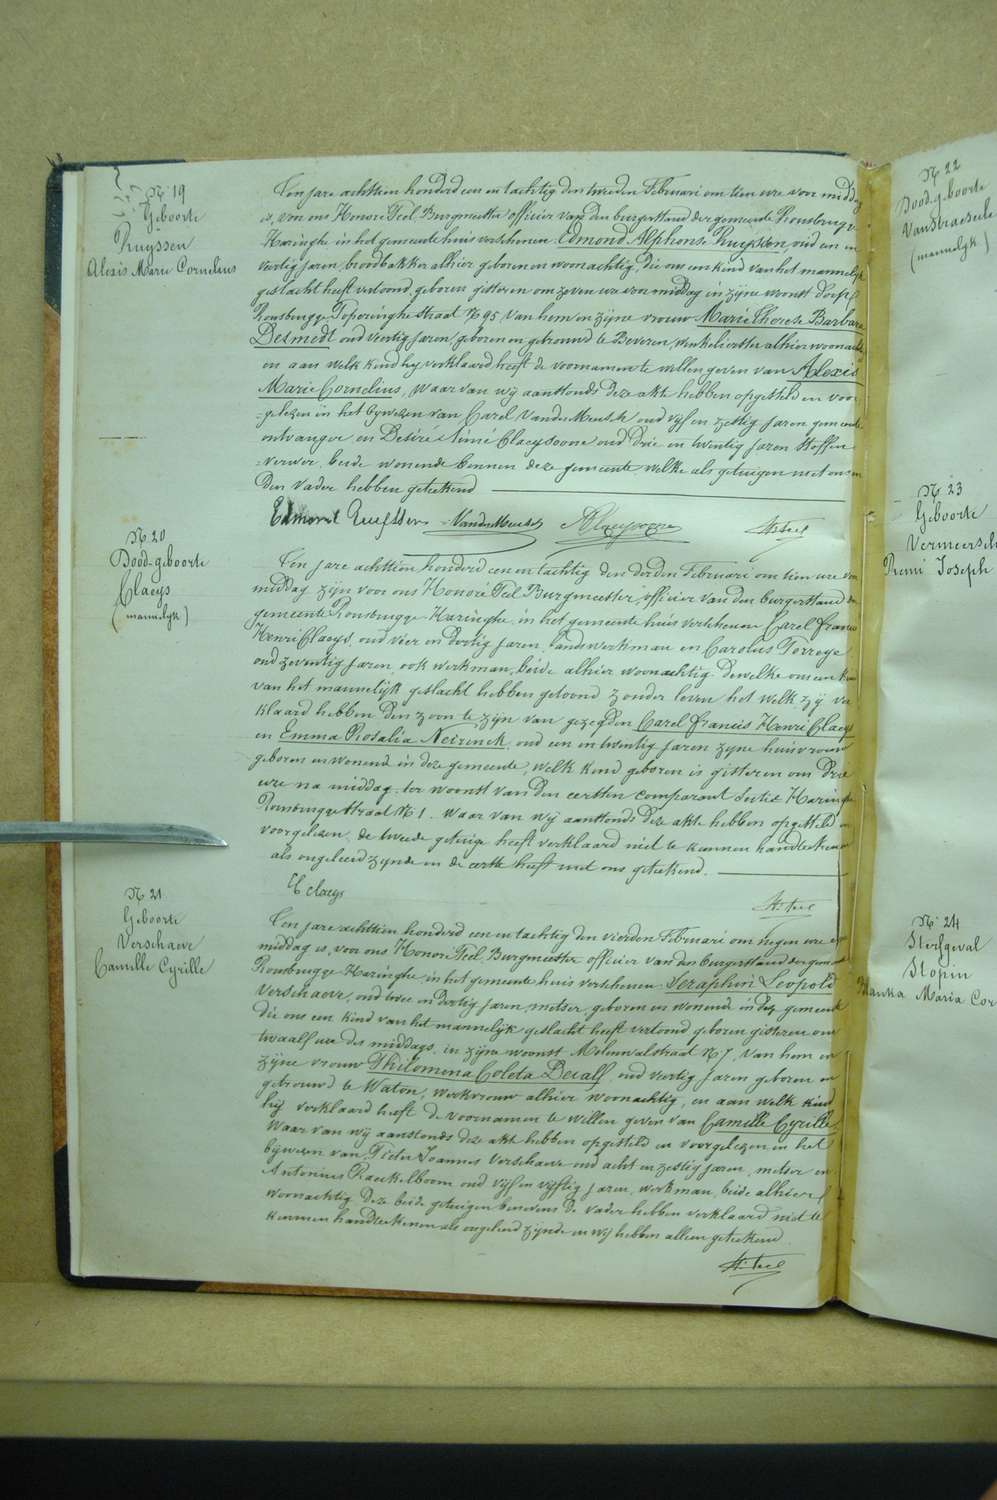 N 19
Geboorte
Ruyssen
Alexis Marie Cornelius
Ten jare achttien honderd een en tachtig den tweeden Februari om tien ure voor midd
is, von ons Honoré Teel Burgmeester officier van den burgerstand der gemeente Rousbrugge
Haringhe in het gemeentehuis verschenen Edmond Alphons Ruyssen oud een en
veertig jaren, broodbakker alhier geboren en woonachtig, die ons een kind van het mannelijk
geslacht heeft vertoond, geboren gisteren om zeven ure voor middag in zijne woonst dorp
Rousbrugge Poperinghestraat N 95 van hem en zijne vrouw Marie Therese Barbara
Desmedt oud veertig jaren, geboren en getrouwd te Beveren, winkelierster alhier woonacht
en aan welk kind hij verklaard heeft de voornamen te willen geven van Alexis
Marie Cornelius, Waar van wij aanstonds deze akte hebben opgesteld en voor
gelezen in het bywezen van Carel VanderMeusch oud vijf en zestig jaren gemeente
ontvanger en Desiré Aimé Claeysoone oud drie en twintig jaren Stoffen
verwer, beide wonende binnen deze gemeente welke als getuigen met ons en
den vader hebben geteekend
Edmond Ruyssen VanderMeusch H. Teel
N 20
Dood-geboorte
Claeys
(mannelijk)
Ten jare achttien honderd een en tachtig den derden Februari om tien ure voor
middag zijn voor ons Honoré Teel Burgmeester, officier van den burgerstand der
gemeente Rousbrugge-Haringhe, in het gemeentehuis verschenen Carel Francis
Henri Claeys, oud vier en dertig jaren, landswerkman en Carolus Torreye
oud zeventig jaren, ook werkman, beide alhier woonachtig. Dewelke ons een kin
van het mannelijk geslacht hebben getoond zonder leven het welk zij ver
klaard hebben den zoon te zijn van gezegden Carel Francis Henri Claeys
en Emma Rosalia Neirinck, oud een en twintig jaren zijne huisvrouw
geboren en wonend in deze gemeente, welk kind geboren is gisteren om drie
ure na middag, ter woonst van den eersten comparant Sectie Haringhe
Rousbruggestraat N 1. Waar van wij aanstonds deze akte hebben opgesteld en
voorgelezen, de tweede getuige heeft verklaard niet te kunnen handteekenen
als ongeleerd zijnde en de eerste heeft met ons geteekend.
C claeys H. Teel
N 21
Geboorte
Verschaeve
Camille Cyrille
Ten jare achttien honderd een en tachtig den vierden Februari om negen ure voor
middag is, voor ons Honoré Teel, Burgmeester officier van den burgerstand der gemeente
Rousbrugge Haringhe in het gemeentehuis verschenen Seraphin Leopold
Verschaeve, oud twee en dertig jaren, metser, geboren en wonend in deze gemeente
die ons een kind van het mannelijk geslacht heeft vertoond, geboren gisteren om
twaalf ure des middags, in zijne woonst Molenwalstraat N 7, van hem en
zijne vrouw Philomena Coleta Decalf, oud veertig jaren geboren en
getrouwd te Waton, werkvrouw alhier woonachtig, en aan welk kind
hij verklaard heeft de voornamen te willen geven van Camille Cyrille
Waar van wij aanstonds deze akte hebben opgesteld en voorgelezen in het
bijwezen van Pieter Joannes Verschaeve oud acht en zestig jaren, metser en
Antonius Raeckelboom oud vijf en vijftig jaren, werkman, beide alhier
woonachtig. Deze beide getuigen benevens de vader hebben verklaard niet te
kunnen handteekenen als ongeleerd zijnde en wij hebben alleen geteekend.
H. Teel
N 22
Dood-geboorte
VanStraeseele
(mannelijk)
N 23
Geboorte
Vermeersch
Remi Joseph
N 24
Sterfgeval
Stopin
Blanka Maria Cor